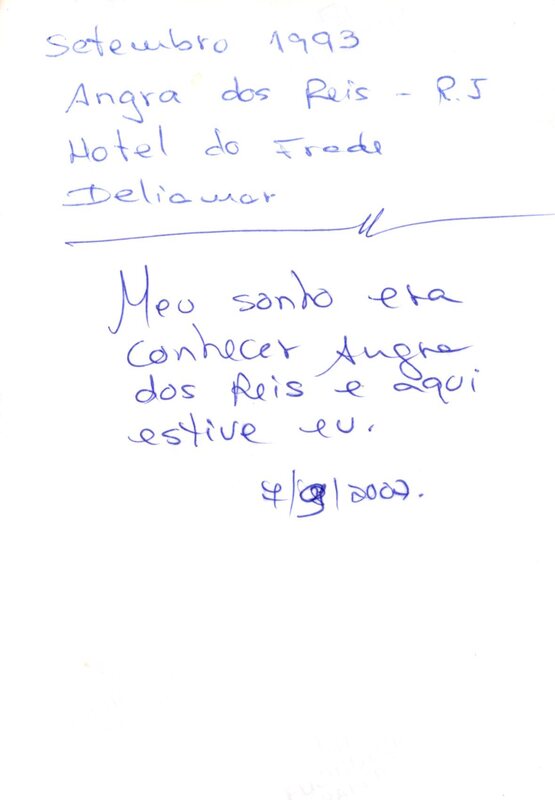 Setembro 1993
Angra dos Reis - R.J
Hotel do Frade
Deliamar
Meu sonho era
conhecer Angra
dos Reis e aqui
estive eu.